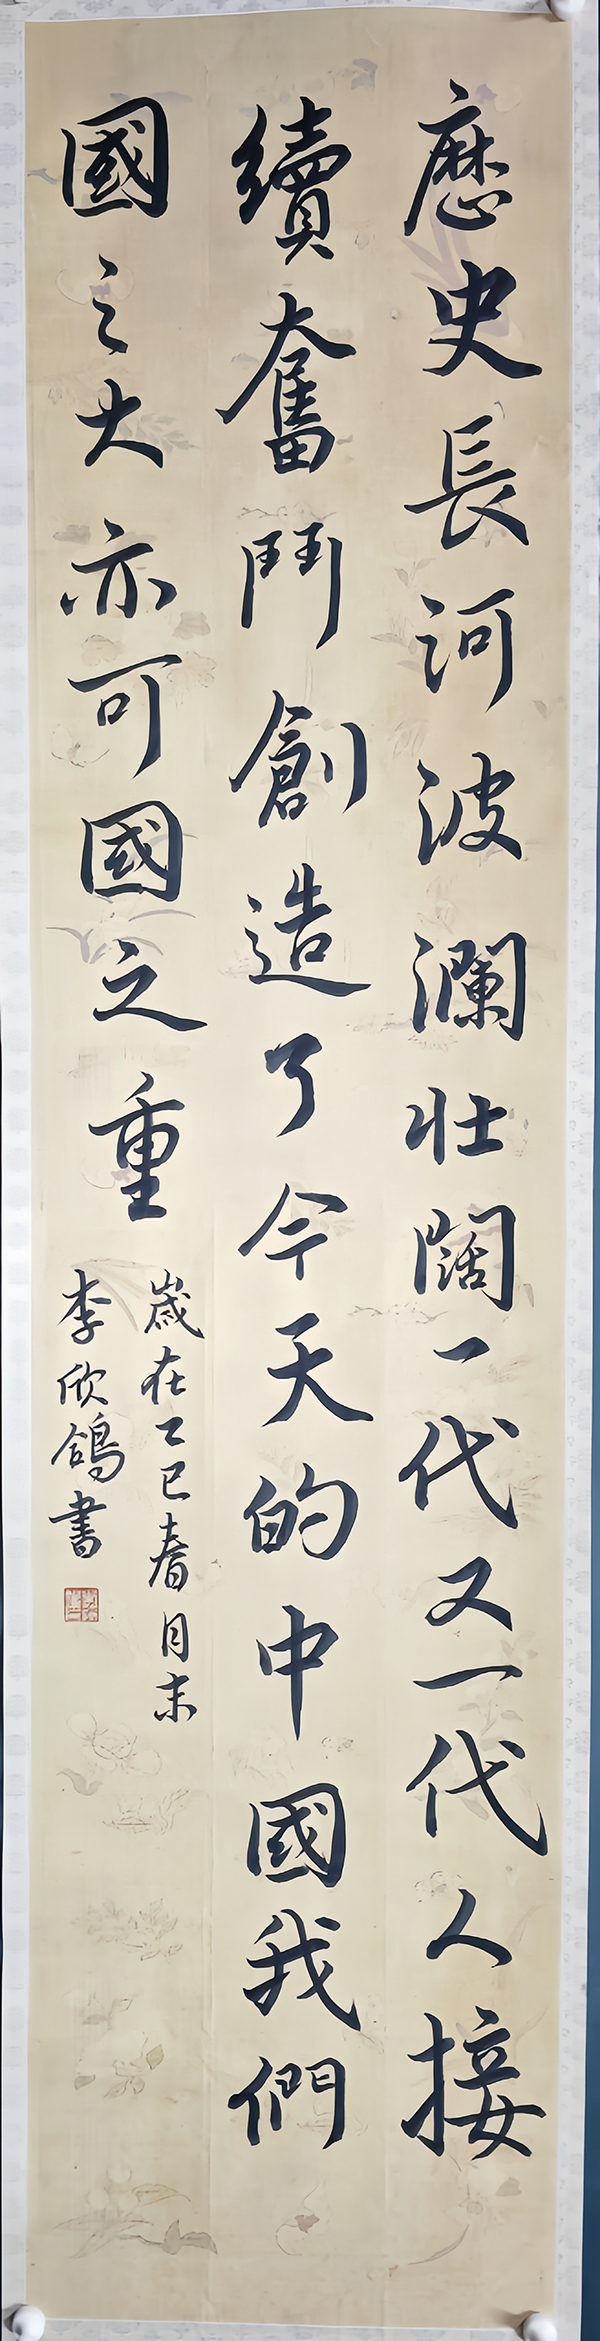 歷史長河波瀾壮闊一代又一代人接
續奮鬥創造了今天的中國我們
國之大亦可國之重
歲在乙巳春月末
李欣鴿書